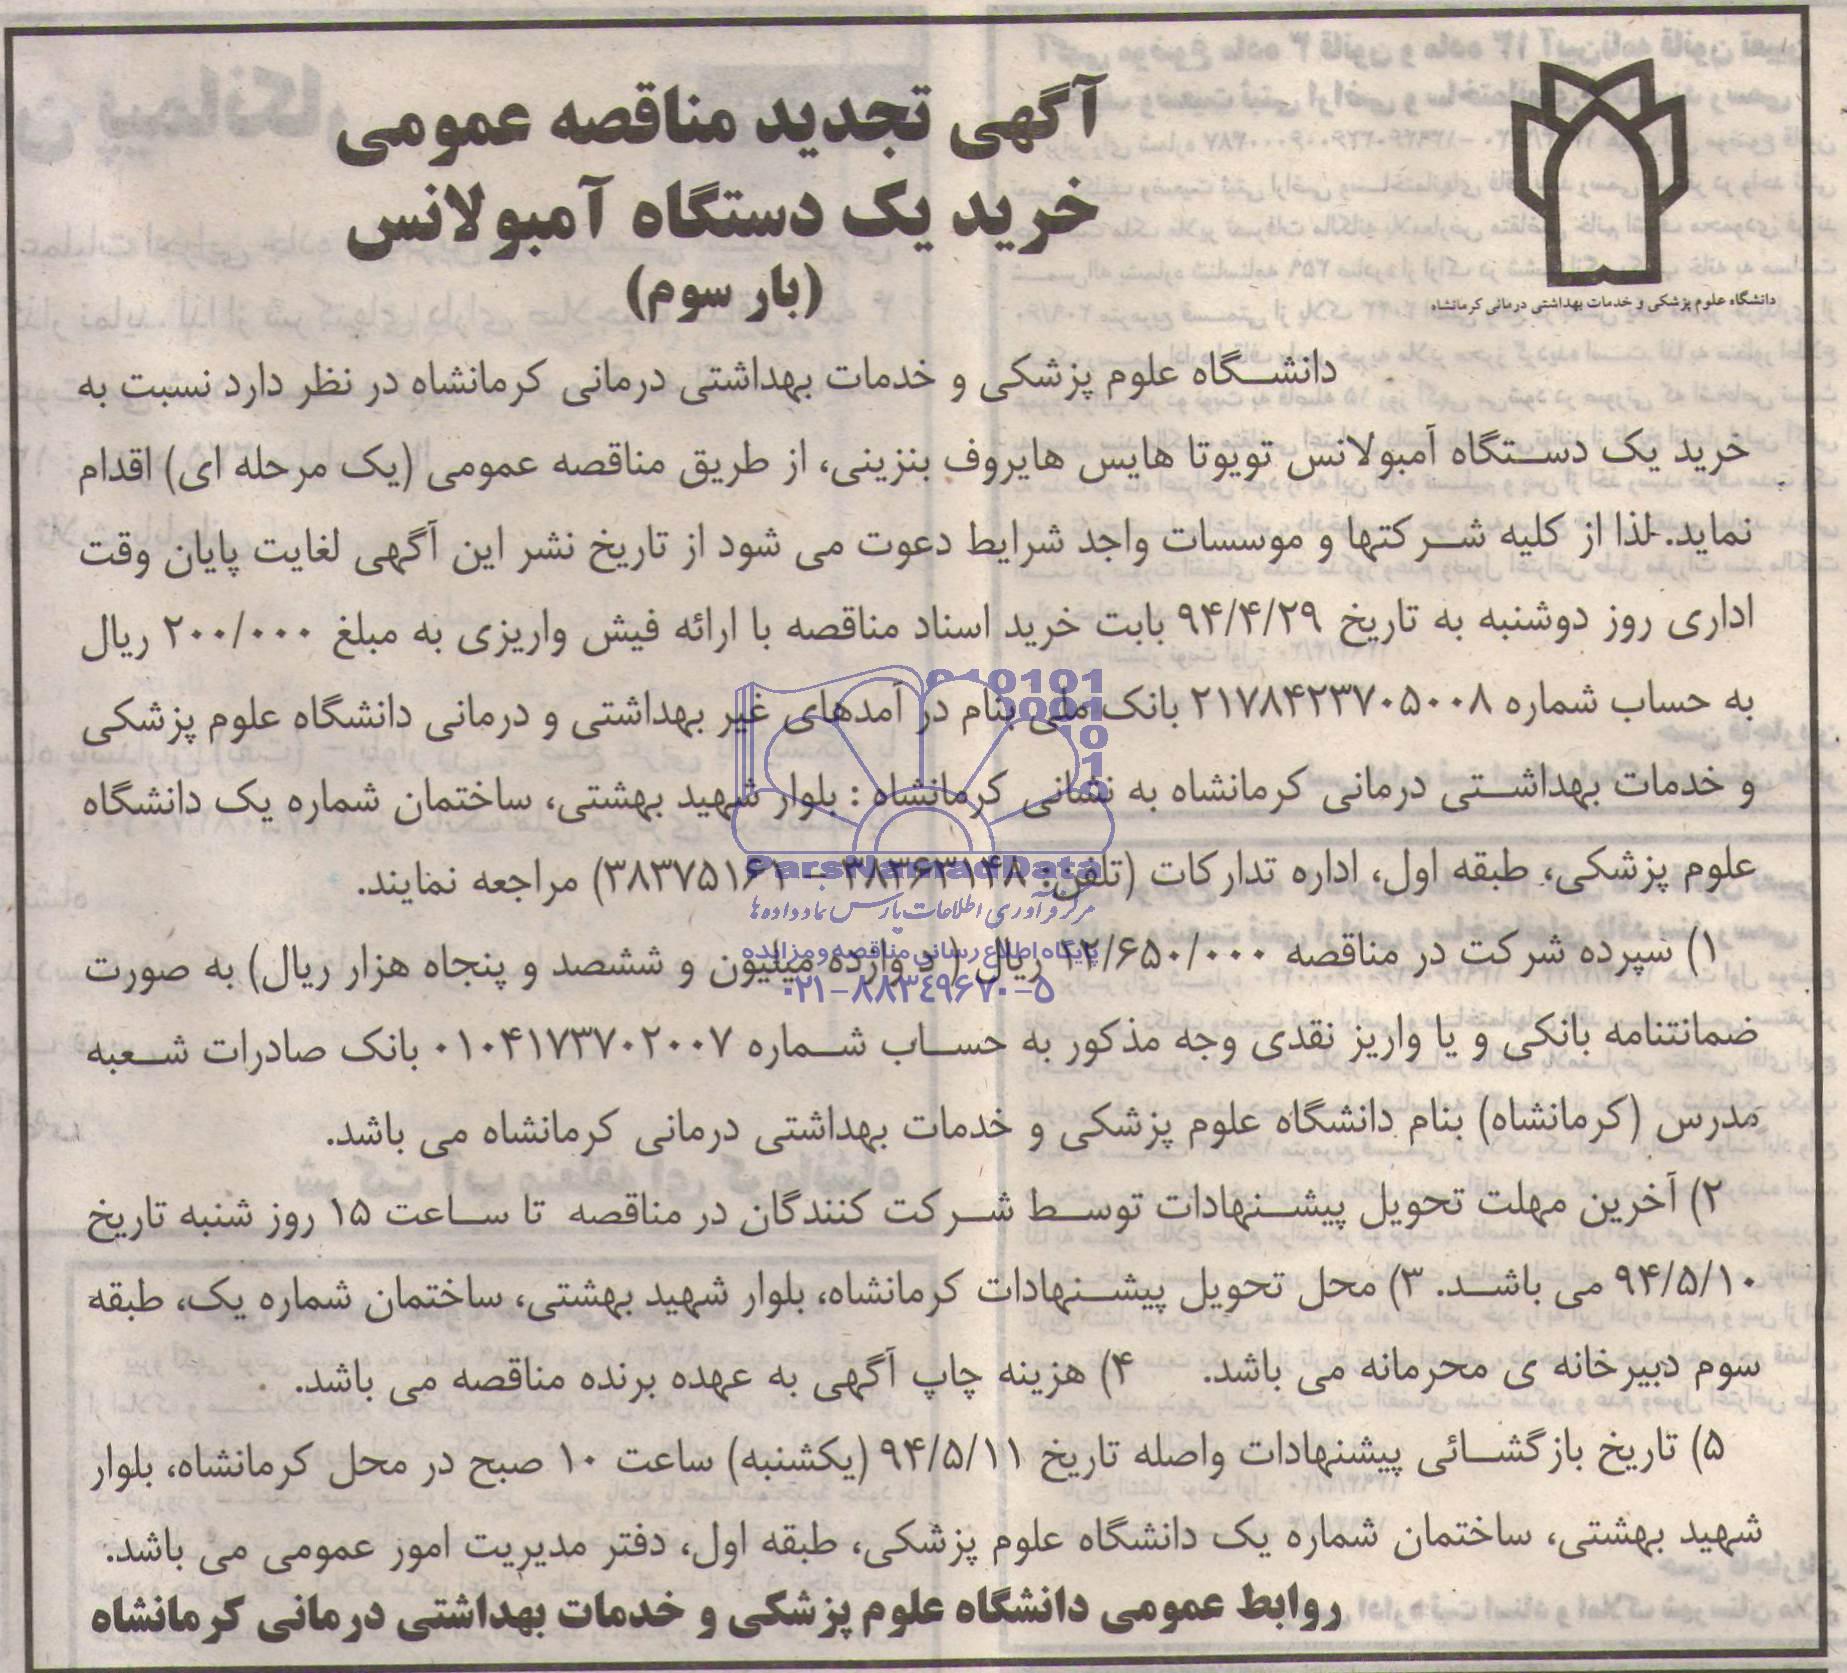 آگهی تجدید مناقصه عمومی
خرید یک دستگاه آمبولانس
(بار سوم)
دانشگاه علوم پزشکی و خدمات بهداشتی درمانی کرمانشاه
دانشگاه علوم پزشکی و خدمات بهداشتی درمانی کرمانشاه در نظر دارد نسبت به
خرید یک دستگاه آمبولانس تویوتا هایس هایروف بنزینی، از طریق مناقصه عمومی (یک مرحله ای) اقدام
نماید. لذا از کلیه شرکتها و موسسات واجد شرایط دعوت می شود از تاریخ نشر این آگهی لغایت پایان وقت
اداری روز دوشنبه به تاریخ ۹۴/۴/۲۹ بابت خرید اسناد مناقصه با ارائه فیش واریزی به مبلغ ۲۰۰/۰۰۰ ریال
به حساب شماره ۲۱۷۸۴۲۳۷۰۵۰۰۸ بانک ملی بنام در آمدهای غیر بهداشتی و درمانی دانشگاه علوم پزشکی
و خدمات بهداشتی درمانی کرمانشاه به نشانی کرمانشاه : بلوار شهید بهشتی، ساختمان شماره یک دانشگاه
علوم پزشکی، طبقه اول، اداره تدارکات (تلفن: ۳۸۳۶۳۱۴۸ – ۳۸۳۷۵۱۶۱) مراجعه نمایند.
۱) سپرده شرکت در مناقصه ۱۲/۶۵۰/۰۰۰ ریال ( دوازده میلیون و ششصد و پنجاه هزار ریال) به صورت
ضمانتنامه بانکی و یا واریز نقدی وجه مذکور به حساب شماره ۰۱۰۴۱۷۳۷۰۲۰۰۷ بانک صادرات شعبه
مدرس (کرمانشاه) بنام دانشگاه علوم پزشکی و خدمات بهداشتی درمانی کرمانشاه می باشد.
۲) آخرین مهلت تحویل پیشنهادات توسط شرکت کنندگان در مناقصه تا ساعت ۱۵ روز شنبه تاریخ
۹۴/۵/۱۰ می باشد. ۳) محل تحویل پیشنهادات کرمانشاه، بلوار شهید بهشتی، ساختمان شماره یک، طبقه
سوم دبیرخانه ی محرمانه می باشد. ۴) هزینه چاپ آگهی به عهده برنده مناقصه می باشد.
۵) تاریخ بازگشائی پیشنهادات واصله تاریخ ۹۴/۵/۱۱ (یکشنبه) ساعت ۱۰ صبح در محل کرمانشاه، بلوار
شهید بهشتی، ساختمان شماره یک دانشگاه علوم پزشکی، طبقه اول، دفتر مدیریت امور عمومی می باشد.
روابط عمومی دانشگاه علوم پزشکی و خدمات بهداشتی درمانی کرمانشاه
ParsNamadData
مرکز فرآوری اطلاعات پارس نماد داده ها
پایگاه اطلاع رسانی مناقصه و مزایده
۰۲۱–۸۸۳۴۹۶۷۰–۵